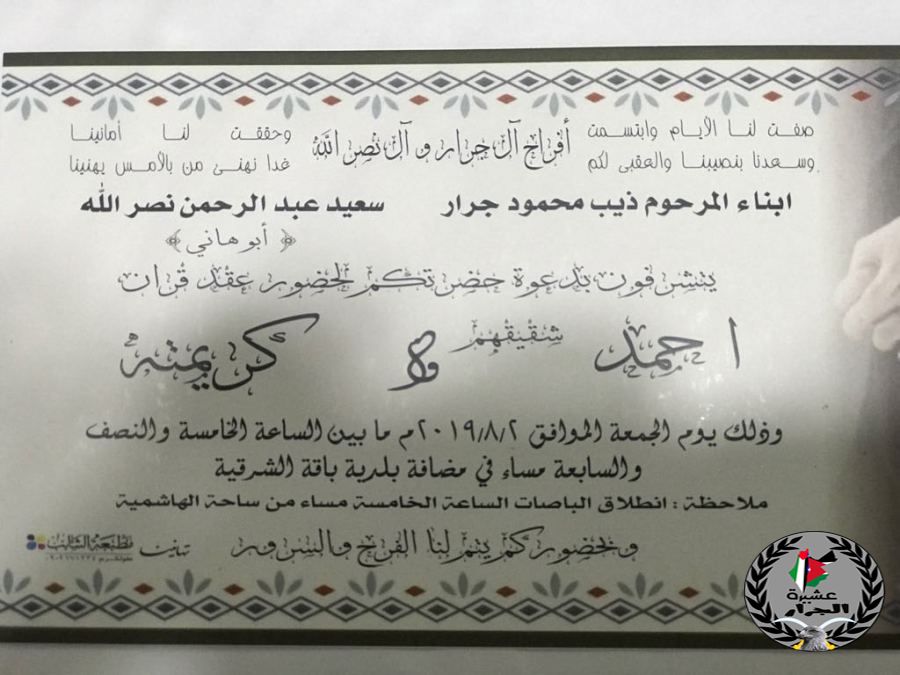 صفت لنا الأيام وابتسمت
وسعدنا بنصيبنا والعقبى لكم
أفراح آل جرار و آل نصر الله
وحققت لنا أمانينا
غدا نهنئ من بالأمس يهنينا
ابناء المرحوم ذيب محمود جرار
سعيد عبد الرحمن نصر الله
﴿ أبو هاني ﴾
يتشرفون بدعوة حضرتكم لحضور عقد قران
احمد
شقيقهم
و
كريمته
وذلك يوم الجمعة الموافق ٢٠١٩/٨/٢م ما بين الساعة الخامسة والنصف
والسابعة مساء في مضافة بلدية باقة الشرقية
ملاحظة : انطلاق الباصات الساعة الخامسة مساء من ساحة الهاشمية
وبحضوركم يتم لنا الفرح والسرور
عشيرة
الجرار